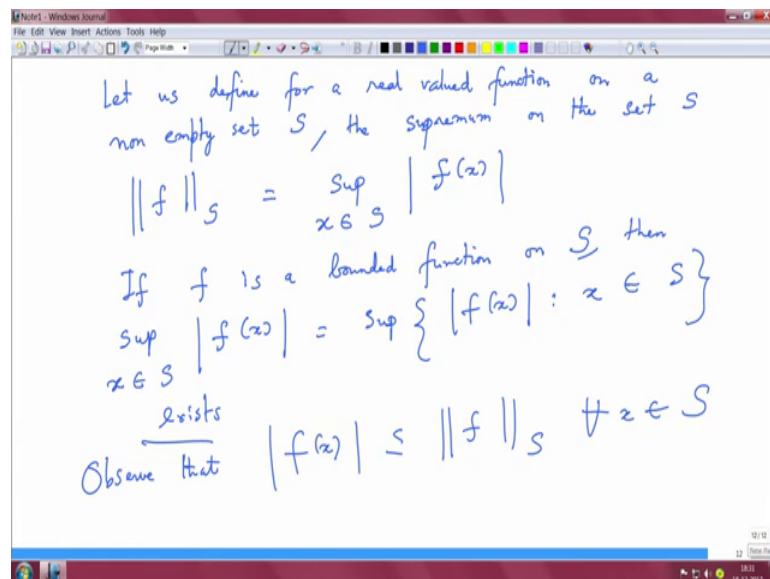 Note1 - Windows Journal
File Edit View Insert Actions Tools Help
Page Width
Let us define for a real valued function on a
non empty set S, the supremum on the set S
‖ f ‖_S = sup_{x ∈ S} | f(x) |
If f is a bounded function on S, then
sup_{x ∈ S} | f(x) | = sup { | f(x) | : x ∈ S }
exists
Observe that | f(x) | ≤ ‖ f ‖_S ∀ x ∈ S
12/12
12
18:31